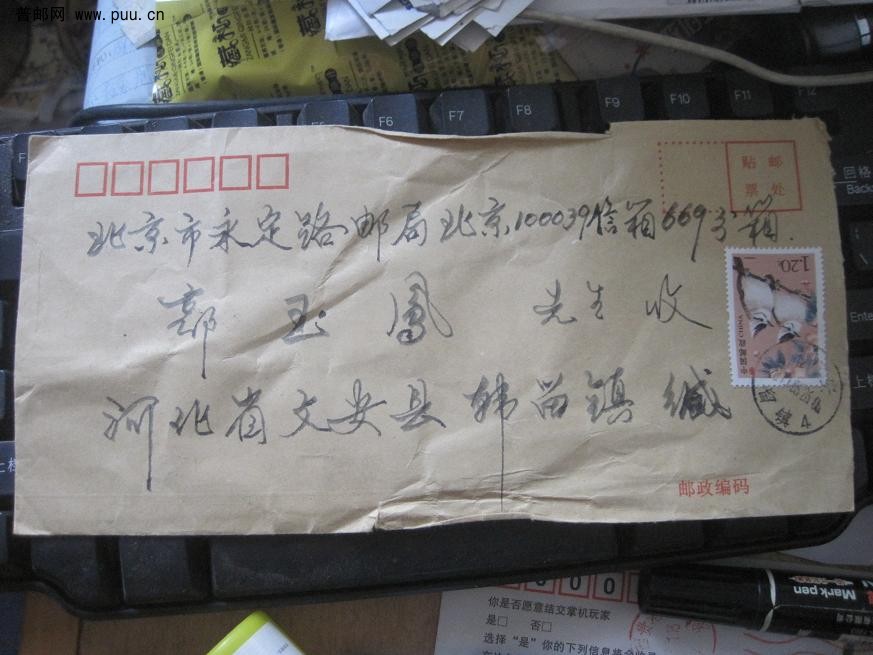 普邮网 www.puu.cn
藏秘
F6 F7 F8 F9 F10 F11 F12
回格
Back
贴邮
票处
北京市永定路邮局北京100039信箱669分箱.
1.20元
中国邮政 CHINA
郭玉凤 先生 收
Enter
河北省文安县韩苗镇 缄
邮政编码
上档
000
Mark pen
有限公司
你是否愿意结交掌机玩家
是□ 否□
选择“是”你的下列信息将会